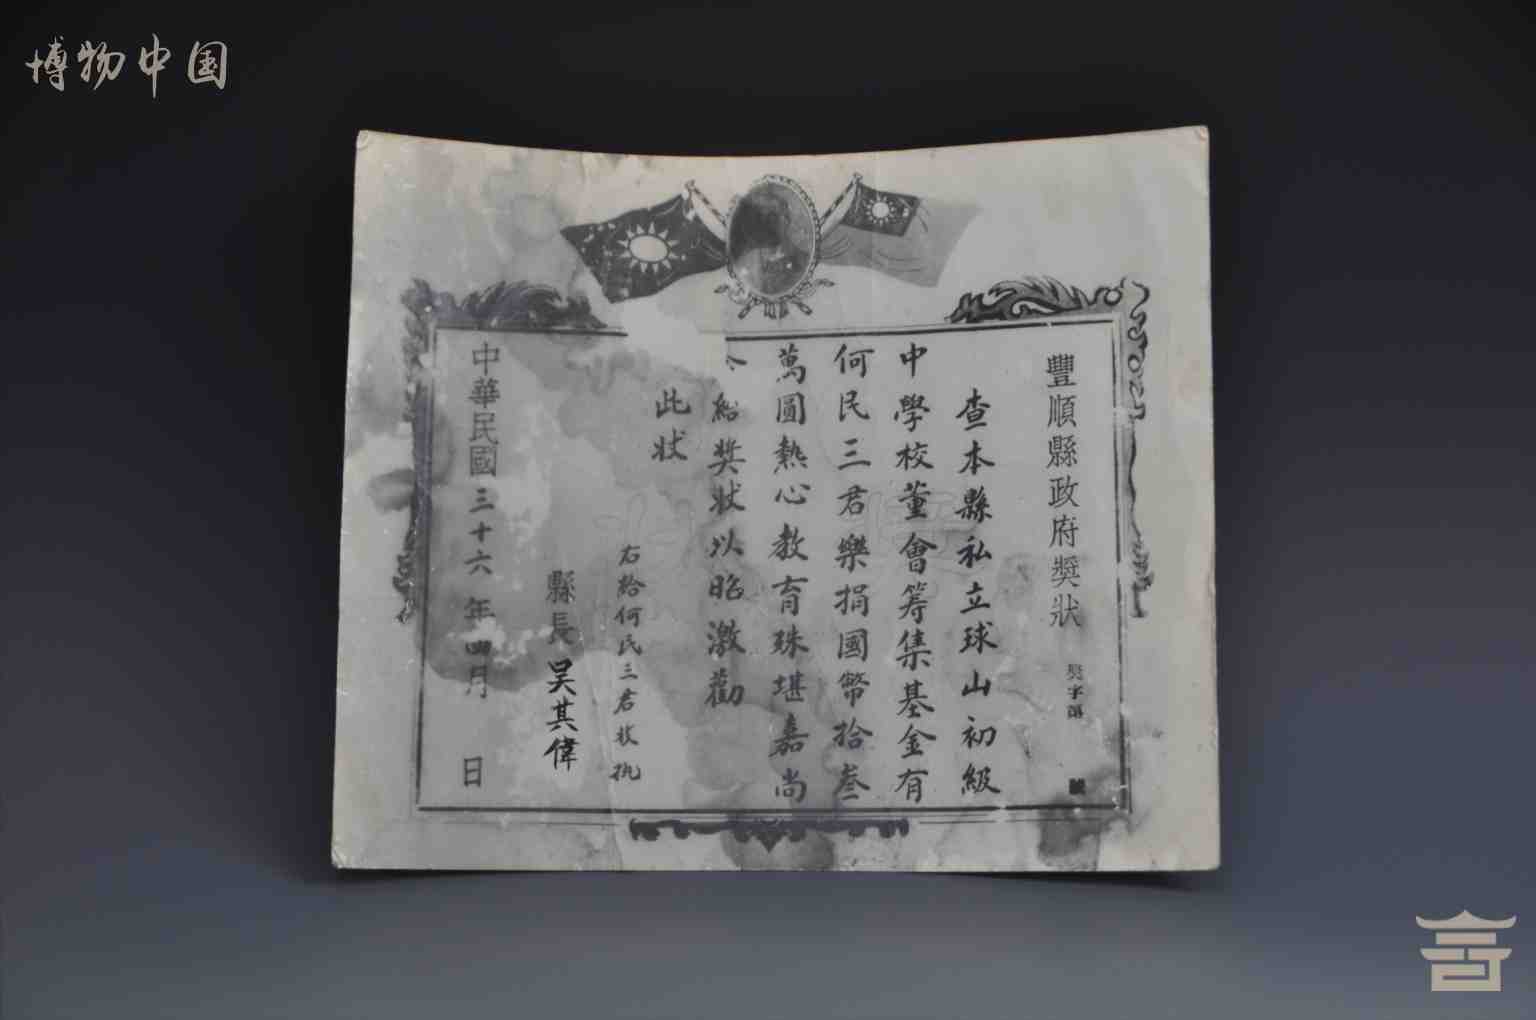 博物中国
豐順縣政府奬狀
奬字第 號
查本縣私立球山初級
中學校董會籌集基金有
何民三君樂捐國幣拾叁
萬圓熱心教育殊堪嘉尚
給奬狀以昭激勸
此狀
右給何民三君收執
縣長吴其偉
中華民國三十六年四月 日